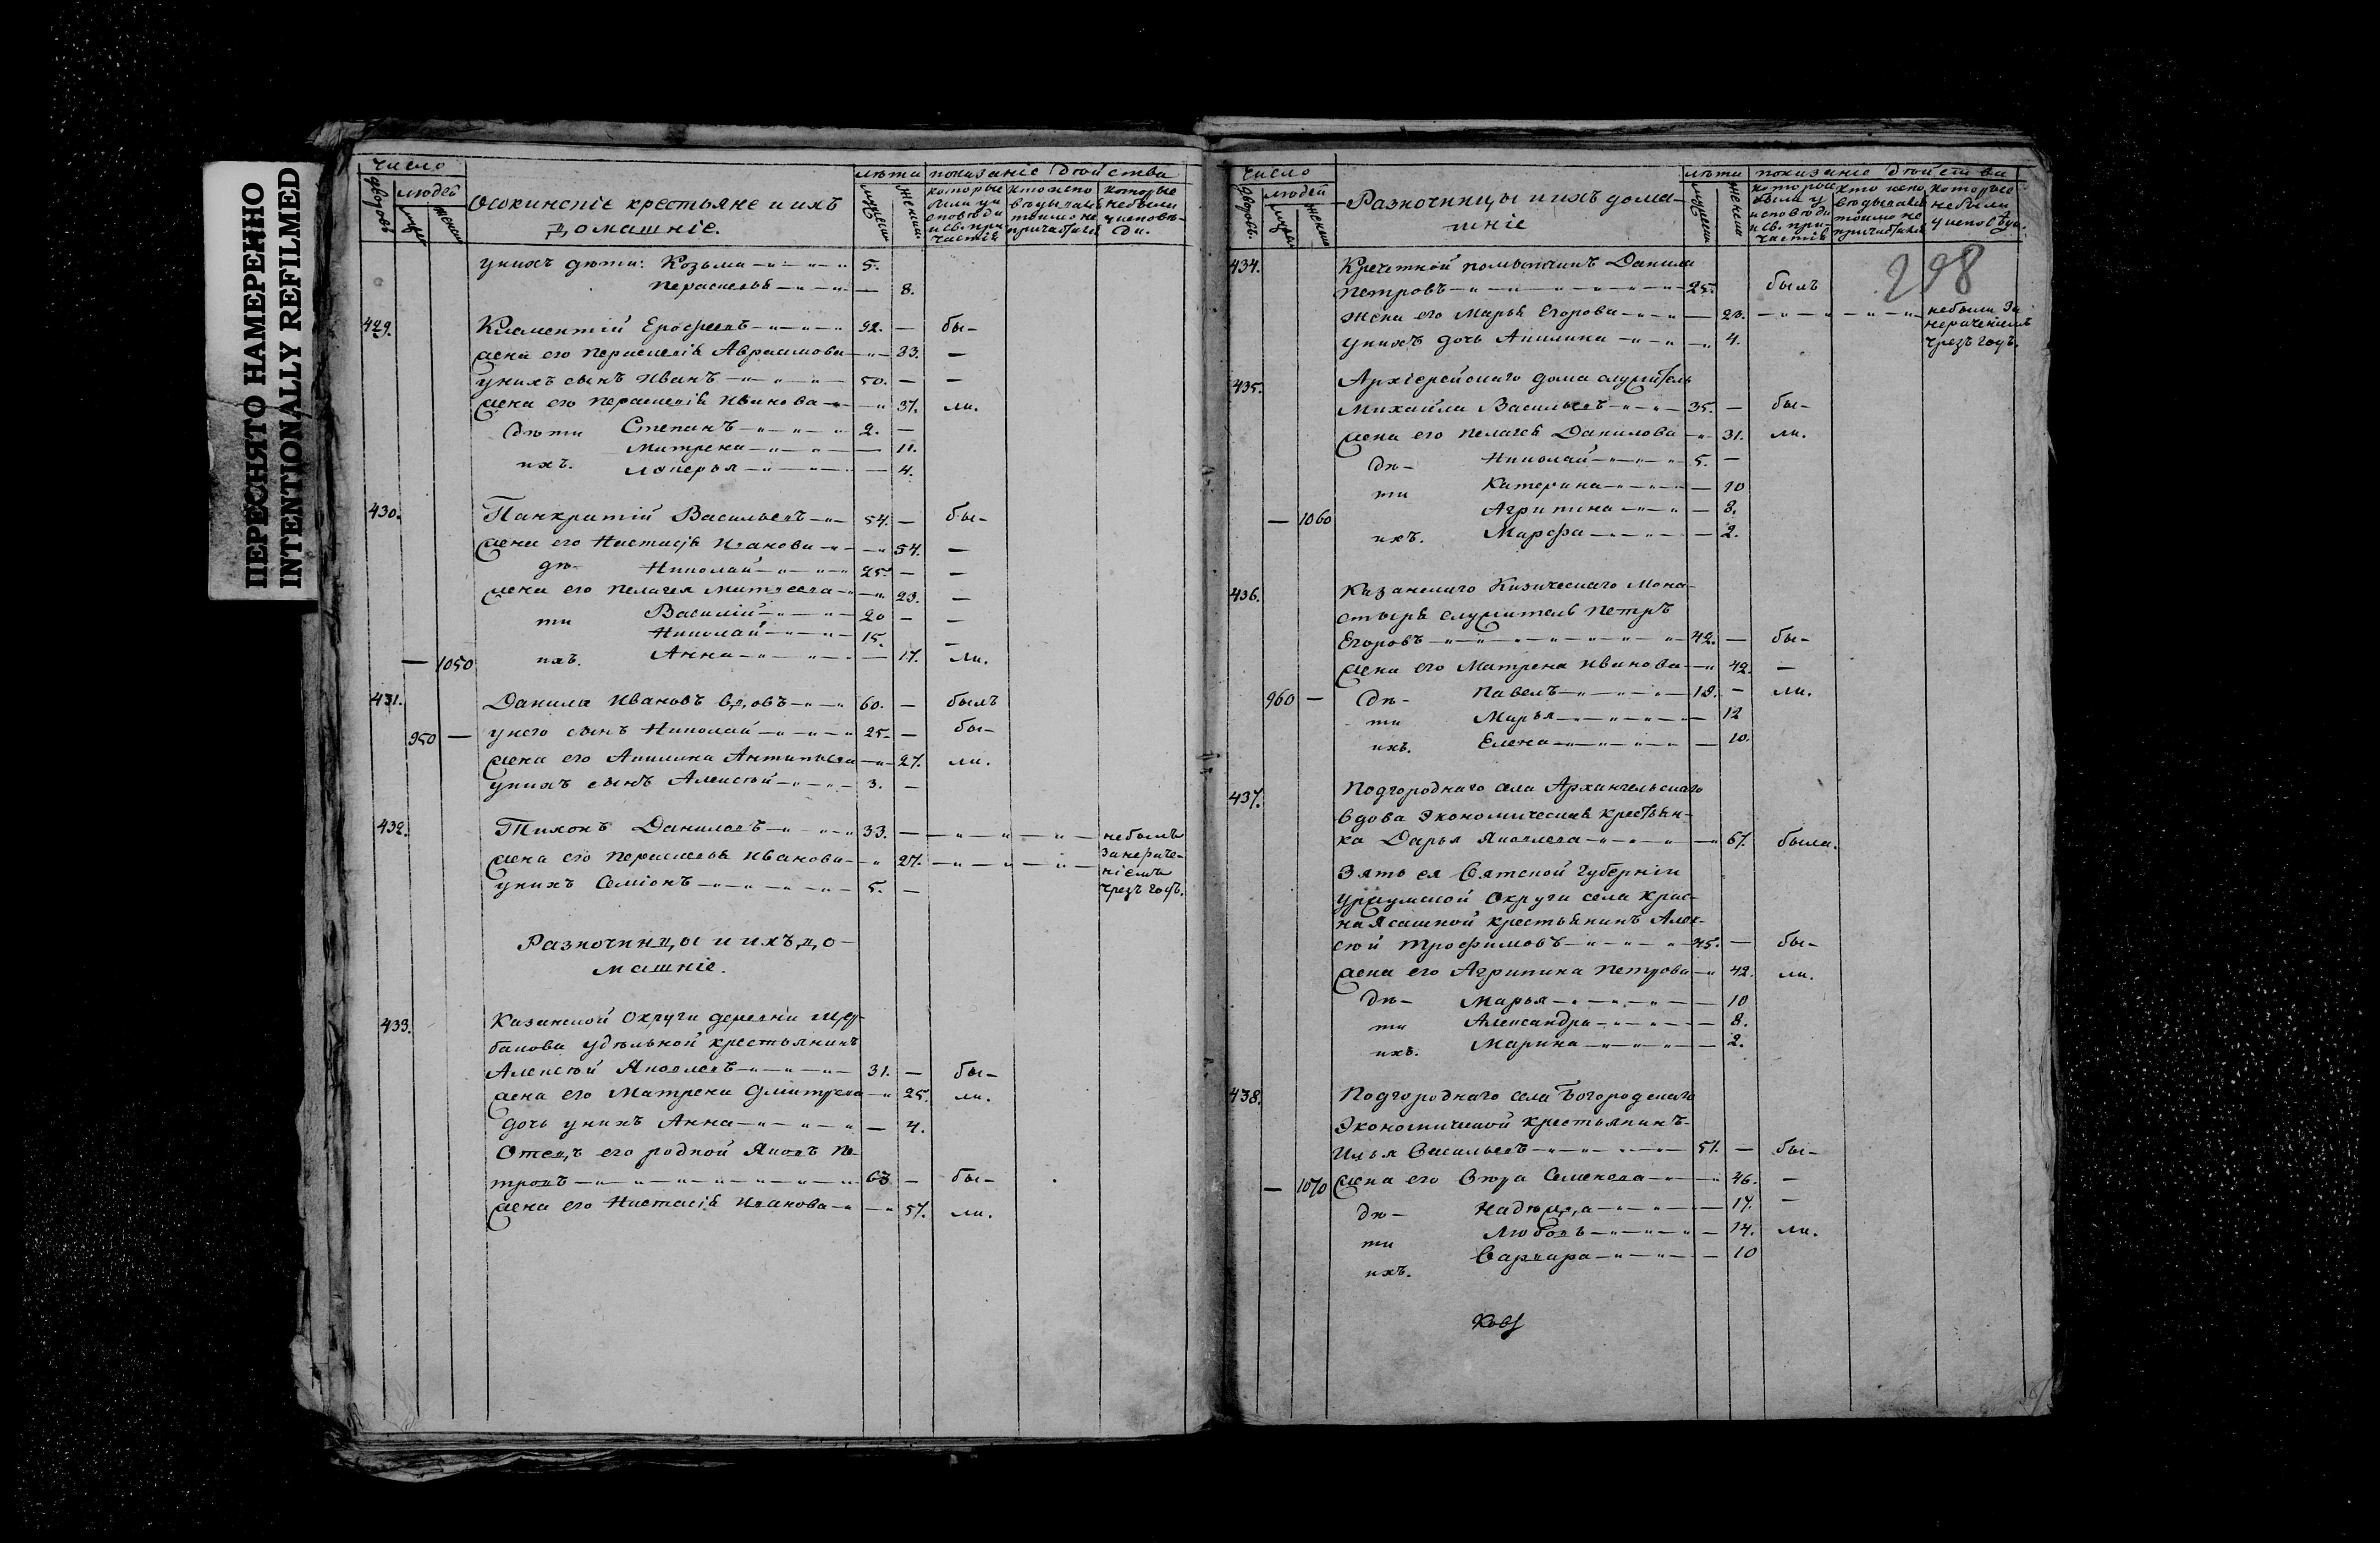 ПЕРЕСНЯТО НАМЕРЕННО
INTENTIONALLY REFILMED
число лѣта показаніе дѣйства
дворовъ людей Осокинскіе крестьяне и ихъ
домашніе.
которые были у исповѣди и св. причастія
кто исповѣдывались токмо не причастились
которые небыли у исповѣди.
у нихъ дѣти: Козьма 5.
Парасковья 8.
429. Клементій Ерофеевъ 92. бы-
жена его Параскевія Авраамова 33. —
у нихъ сынъ Иванъ 50. —
жена его Параскевія Иванова 37. ли.
дѣти Степанъ 2.
Матрена 11.
ихъ. 4.
430. Панкратій Васильевъ 54. бы-
жена его Настасія Иванова 54. —
дѣ- Николай 25. —
жена его Пелагея Матвеева 23. —
ти Василій 20 —
Николай 15. —
1050 ихъ. Анна 17. ли.
431. Данила Ивановъ вдовъ 60. былъ
950 у него сынъ Николай 25. бы-
жена его Акилина Антипьева 27. ли.
у нихъ сынъ Алексѣй 3.
432. Тихонъ Даниловъ 33. небылъ
жена его Парасковья Иванова 27. за нераче-
ніемъ
у нихъ Семіонъ 5. чрезъ годъ.
Разночинцы и ихъ до-
машніе.
433. Казанской Округи деревни Щер-
бакова удѣльной крестьянинъ
Алексѣй Яковлевъ 31. бы-
жена его Матрена Дмитрева 25. ли.
дочь у нихъ Анна 4.
Отецъ его родной Яковъ Пе-
тровъ 63 бы-
жена его Настасія Иванова 57. ли.
число лѣта показаніе дѣйства
дворовъ. людей Разночинцы и ихъ дома-
шніе
которые были у исповѣди и св. причастія
кто исповѣдывался токмо не причастился
которые небыли у исповѣди.
298
434. Кречетной помытчикъ Данила
Петровъ 25. былъ
Жена его Марья Егорова 23. небыли за
нерачениемъ
у нихъ дочь Акилина 4. чрезъ годъ.
435. Архіерейскаго дома служитель
Михайла Васильевъ 35. бы-
жена его Пелагея Данилова 31. ли.
Дѣ- Николай 5.
ти Катерина 10
1060 Агрипина 8.
ихъ. Марфа 2.
436. Казанскаго Кизическаго Мона-
стыря служитель Петръ
Егоровъ 42. бы-
жена его Матрена Иванова 42. —
960 Дѣ- Павелъ 18. ли.
ти Марья 12
ихъ. Елена 10.
437. Подгороднаго села Архангельскаго
вдова Экономическая крестьян-
ка Дарья Яковлева 67. была.
Зять ея Вятской Губерніи
Уржумской Округи села Крас-
на Ясашной крестьянинъ Алек-
сѣй Трофимовъ 45. бы-
жена его Агрипина Петрова 42. ли.
Дѣ- Марья 10
ти Александра 8.
ихъ. Марина 2.
438. Подгороднаго села Богородскаго
Экономической крестьянинъ
Илья Васильевъ 51. бы-
1070 жена его Ѳекла Семенова 46. —
дѣ- Надежда 17. —
ти Любовь 14. ли.
ихъ. Варвара 10